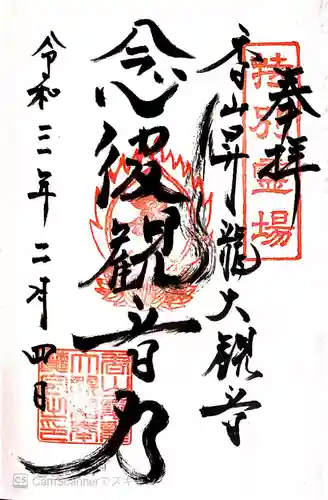 奉拝
特別霊場
香山昇龍大観音
念彼観音力
令和三年二月四日
CS CamScannerでスキ